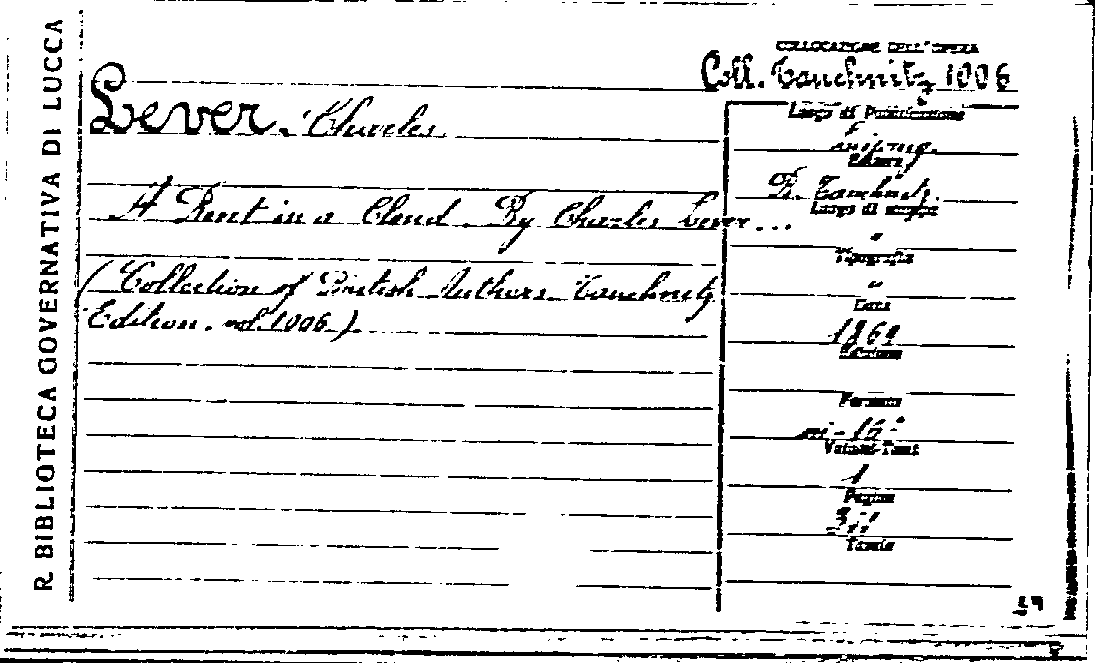 R. BIBLIOTECA GOVERNATIVA DI LUCCA
COLLOCAZIONE DELL'OPERA
Coll. Tauchnitz 1006
Lever, Charles
A Rent in a Cloud. By Charles Lever...
(Collection of British Authors Tauchnitz
Edition. vol. 1006)
Luogo di Pubblicazione
Leipzig.
Editore
B. Tauchnitz.
Luogo di stampa
"
Tipografia
"
Data
1869
Edizione
Formato
in-16°
Volumi-Tomi
1
Pagine
Tavole